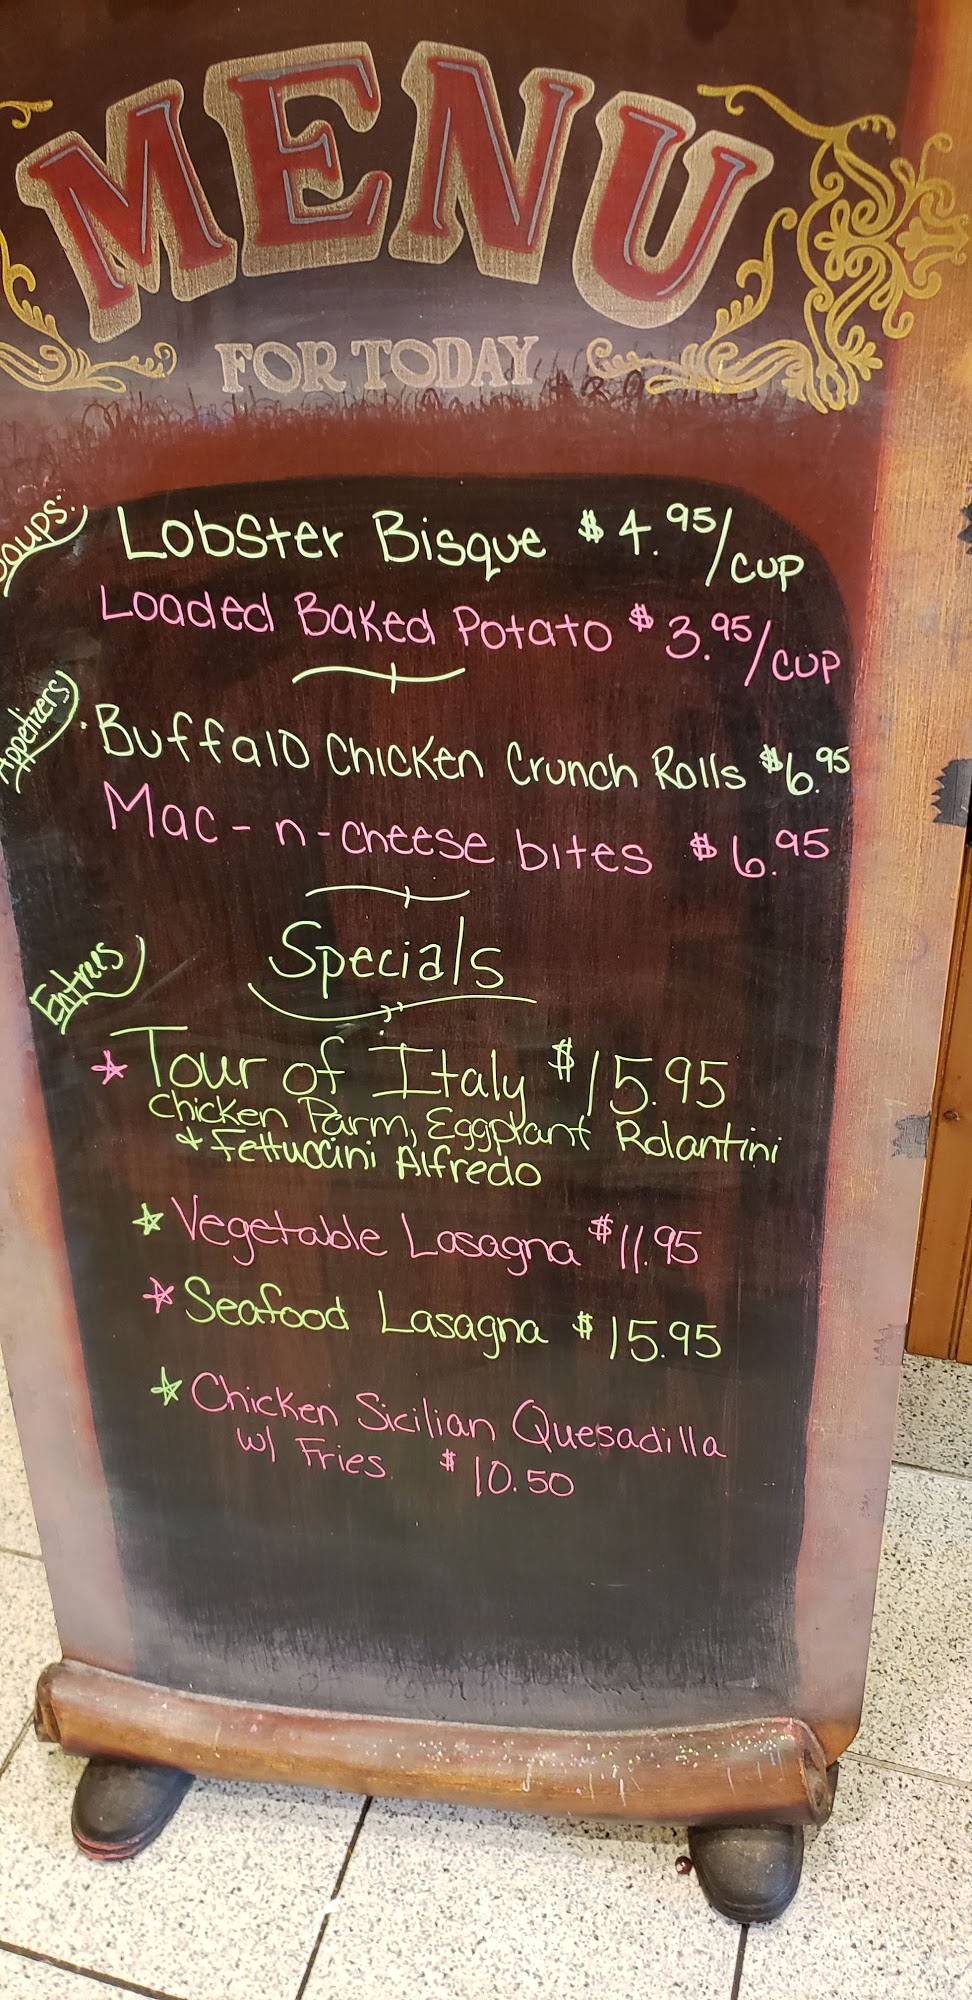 MENU
FOR TODAY
Soups:
Lobster Bisque $4.95/cup
Loaded Baked Potato $3.95/cup
Appetizers
Buffalo Chicken Crunch Rolls $6.95
Mac-n-cheese bites $6.95
Specials
Entrees
Tour of Italy $15.95
Chicken Parm, Eggplant Rolantini
& Fettuccini Alfredo
Vegetable Lasagna $11.95
Seafood Lasagna $15.95
Chicken Sicilian Quesadilla
w/ Fries $10.50